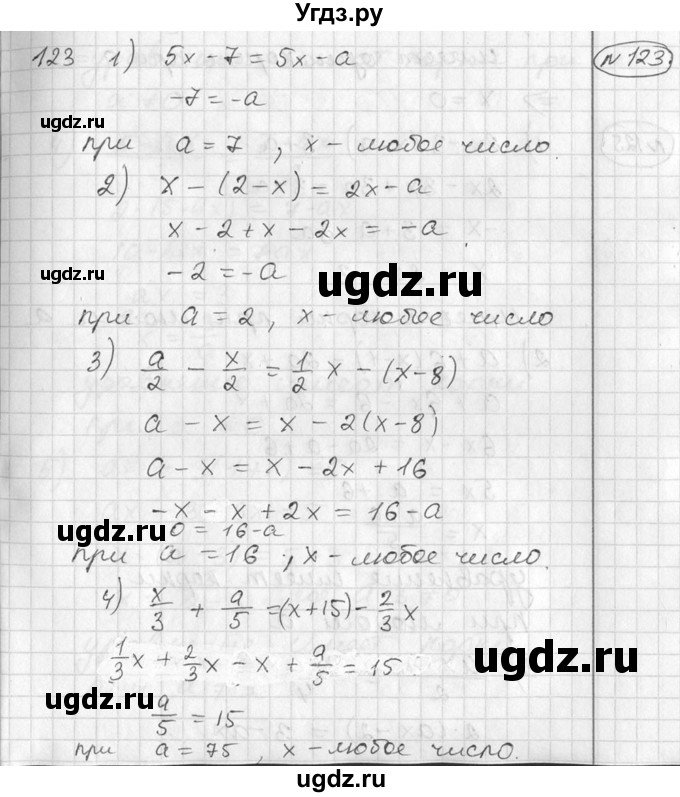 Угдз.ру
123 1) 5x - 7 = 5x - a
№123.
-7 = -a
ugdz.ru
при a = 7, x - любое число
2) x - (2 - x) = 2x - a
x - 2 + x - 2x = -a
ugdz.ru
-2 = -a
ugdz.ru
при a = 2, x - любое число
3) a/2 - x/2 = 1/2 x - (x - 8)
a - x = x - 2(x - 8)
a - x = x - 2x + 16
-x - x + 2x = 16 - a
ugdz.ru
0 = 16 - a
при a = 16, x - любое число.
4) x/3 + a/5 = (x + 15) - 2/3 x
1/3 x + 2/3 x - x + a/5 = 15
ugdz.ru
ugdz.ru
a/5 = 15
при a = 75, x - любое число.
ugdz.ru